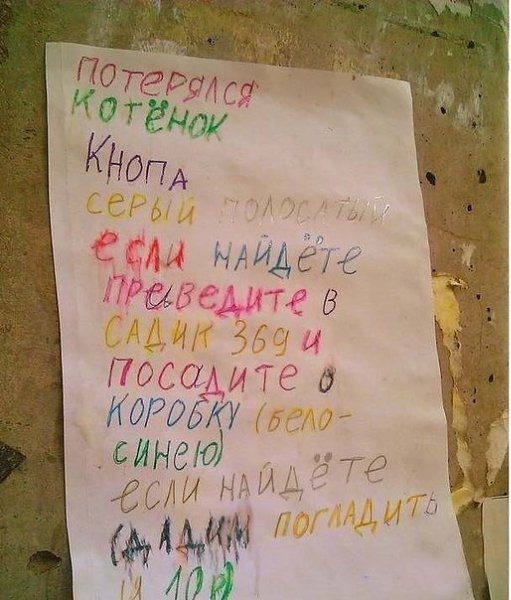 ПОТЕРЯЛСЯ
КОТЁНОК
КНОПА
СЕРЫЙ ПОЛОСАТЫЙ
если НАЙДЁТЕ
ПРЕВЕДИТЕ В
САДИК 369 и
ПОСАДИТЕ В
КОРОБКУ (БЕЛО-
СИНЕЮ)
ЕСЛИ НАЙДЁТЕ
ДАДИМ ПОГЛАДИТЬ
И 10р